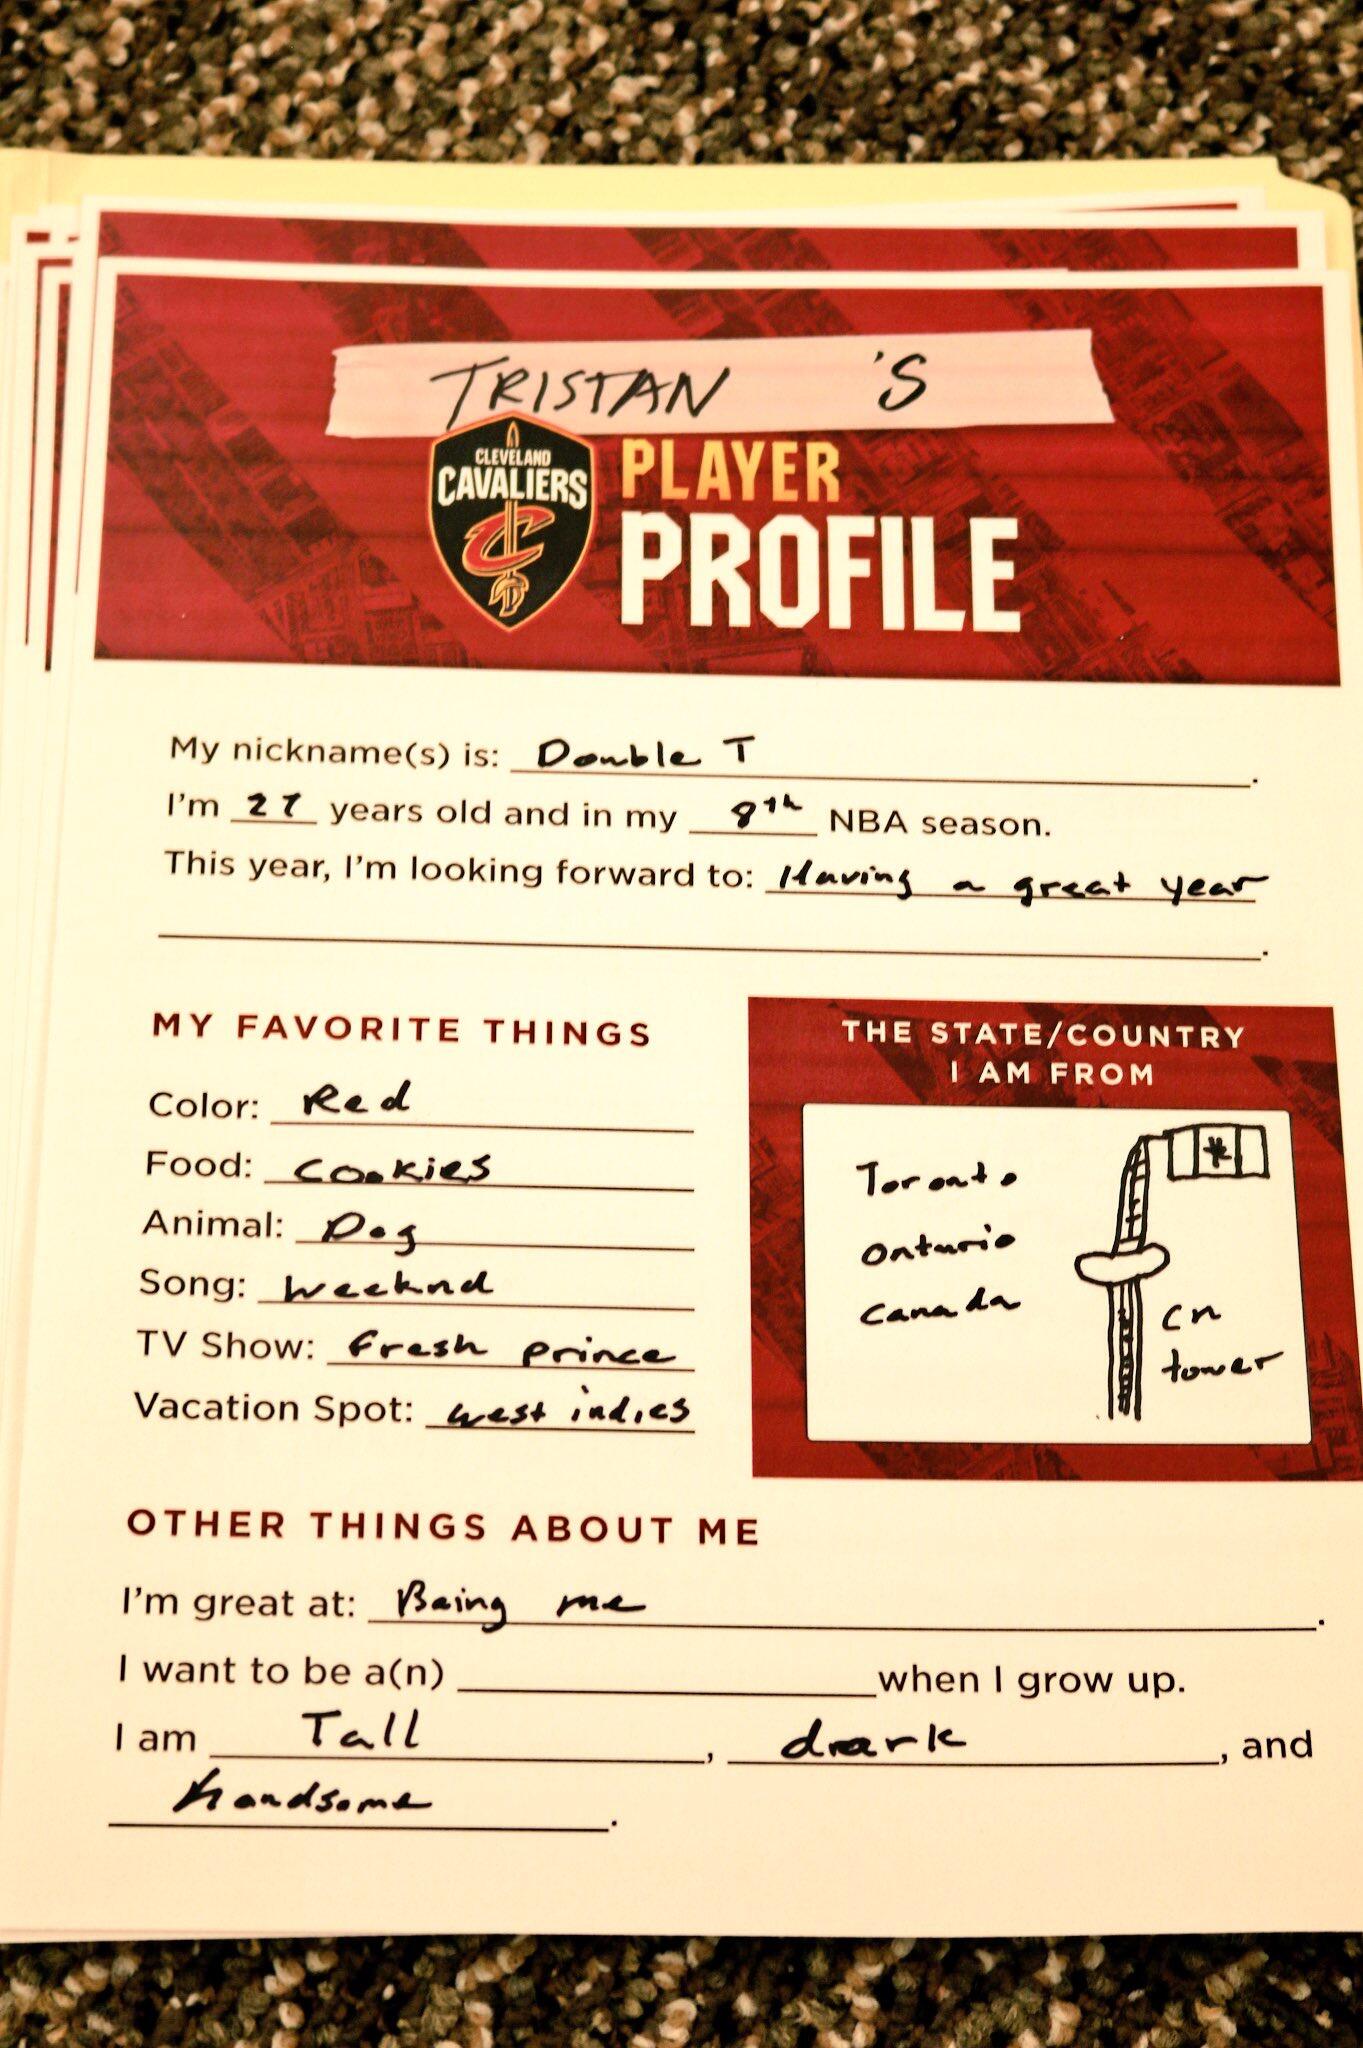 TRISTAN 'S
CLEVELAND
CAVALIERS
C
PLAYER
PROFILE
My nickname(s) is: Double T.
I'm 27 years old and in my 8th NBA season.
This year, I'm looking forward to: Having a great year
.
MY FAVORITE THINGS
Color: Red
Food: Cookies
Animal: Dog
Song: Weeknd
TV Show: Fresh prince
Vacation Spot: West indies
THE STATE/COUNTRY
I AM FROM
Toronto
Ontario
Canada
CN
tower
OTHER THINGS ABOUT ME
I'm great at: Being me.
I want to be a(n) when I grow up.
I am Tall, dark, and
handsome.